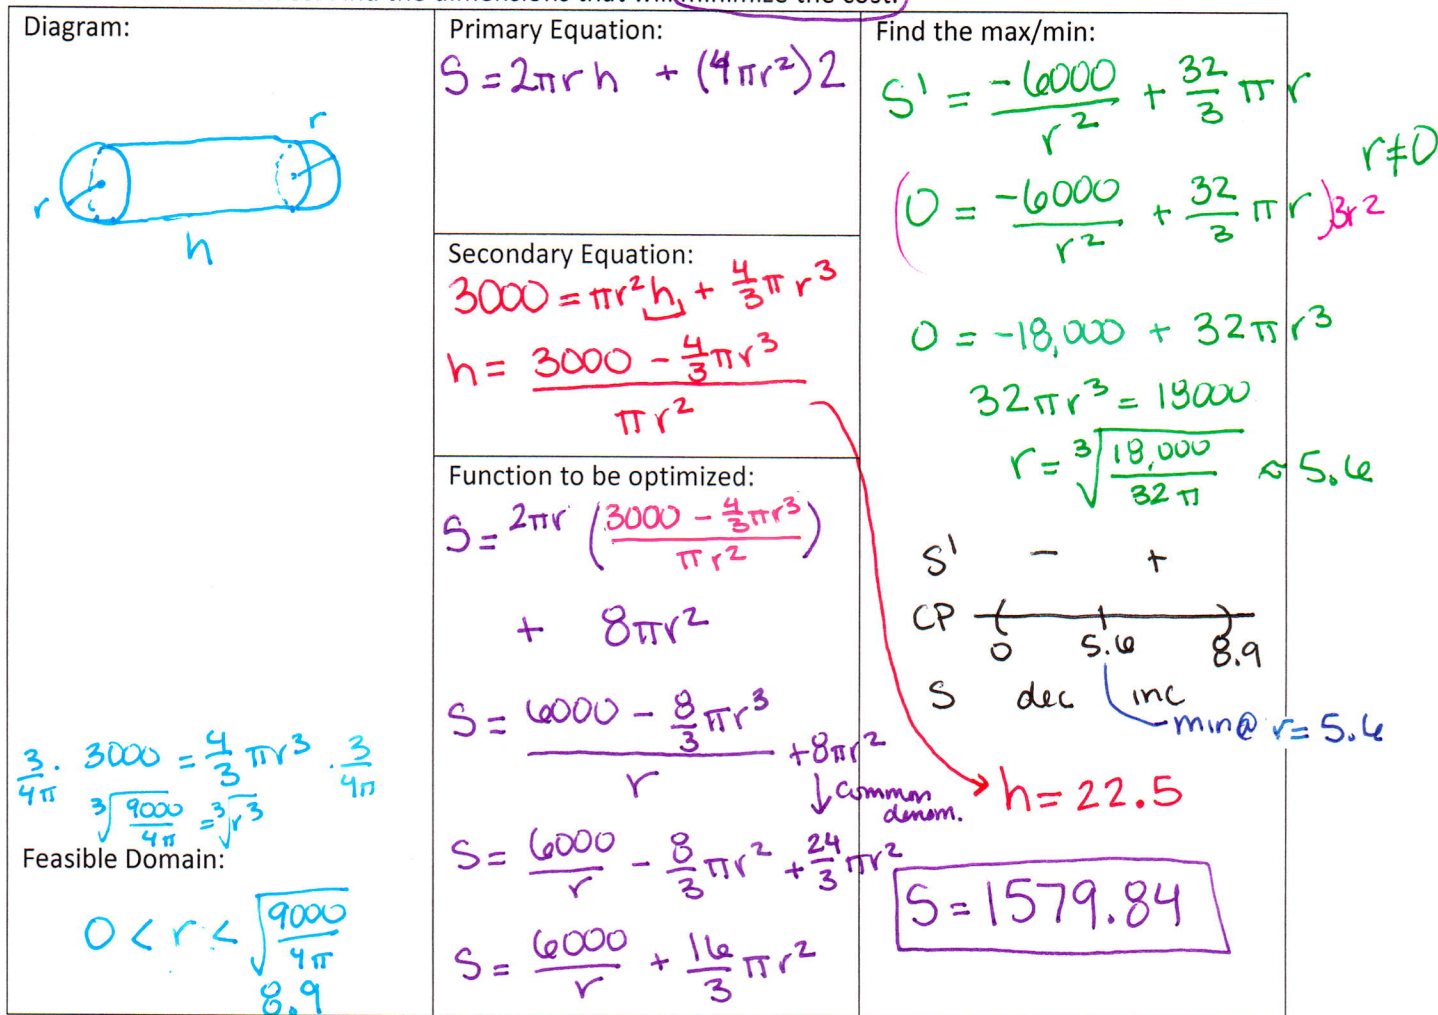 minimize the cost.
Diagram:
r
r
h
3/4π · 3000 = 4/3 πr³ · 3/4π
³√(9000/4π) = ³√r³
Feasible Domain:
0 < r < √(9000/4π)
8.9
Primary Equation:
S = 2πrh + (4πr²)2
Secondary Equation:
3000 = πr²h + 4/3 πr³
h = (3000 - 4/3 πr³)/(πr²)
Function to be optimized:
S = 2πr ((3000 - 4/3 πr³)/(πr²))
+ 8πr²
S = (6000 - 8/3 πr³)/r + 8πr²
↓ common
denom.
S = 6000/r - 8/3 πr² + 24/3 πr²
S = 6000/r + 16/3 πr²
Find the max/min:
S' = -6000/r² + 32/3 πr
r≠0
(0 = -6000/r² + 32/3 πr)3r²
0 = -18,000 + 32πr³
32πr³ = 18000
r = ³√(18,000/32π) ≈ 5.6
S' - +
CP 0 5.6 8.9
S dec inc
min@ r = 5.6
h = 22.5
S = 1579.84